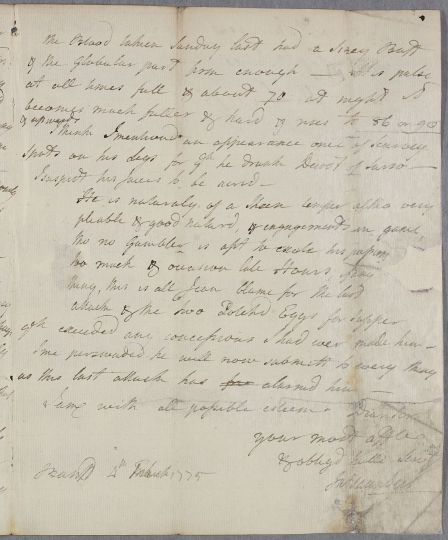 the Blood taken Sunday last had a Sizey Crust
& the Globular part firm enough — His pulse
at all times full & about 70 at night it
becomes much fuller & hard & rises to 86 or 90
& upwards
I think I mentiond an appearance once of Scurvey
Spots on his Legs for qch he drank Decoct of Sarsa —
I suspect his Juices to be acrid —
He is naturaly of a keen temper altho very
pliable & good naturd, & engagements in game
tho no Gambler is apt to excite his passions
too much & occasion late Hours,
thing, this is all I can blame for the last
attack & the two Potchd Eggs for supper
qch exceeded any concessions I had ever made him —
I me perswaded he will now submitt to every thing
as this last attack has alarmed him —
I am with all possible esteem Dear
your most affte
& obligd
4th March 1775